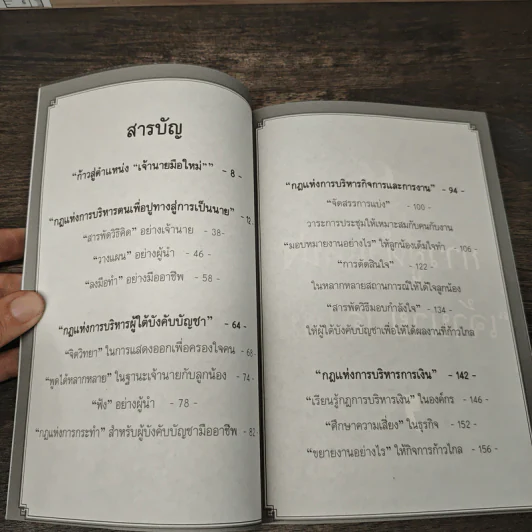 สารบัญ
“ก้าวสู่ตำแหน่ง “เจ้านายมือใหม่”” - 8 -
“กฎแห่งการบริหารตนเพื่อปูทางสู่การเป็นนาย” - 12 -
“สารพัดวิธีคิด” อย่างเจ้านาย - 38-
“วางแผน” อย่างผู้นำ - 46 -
“ลงมือทำ” อย่างมืออาชีพ - 58 -
“กฎแห่งการบริหารผู้ใต้บังคับบัญชา” - 64 -
“จิตวิทยา” ในการแสดงออกเพื่อครองใจคน - 68 -
“พูดได้หลากหลาย” ในฐานะเจ้านายกับลูกน้อง - 74 -
“ฟัง” อย่างผู้นำ - 78 -
“กฎแห่งการกระทำ” สำหรับผู้บังคับบัญชามืออาชีพ - 82 -
“กฎแห่งการบริหารกิจการและการงาน” - 94 -
“จัดสรรการแบ่ง” - 100 -
วาระการประชุมให้เหมาะสมกับคนกับงาน
“มอบหมายงานอย่างไร” ให้ลูกน้องเต็มใจทำ - 106 -
“การตัดสินใจ” - 122 -
ในหลากหลายสถานการณ์ให้ได้ใจลูกน้อง
“สารพัดวิธีมอบกำลังใจ” - 134 -
ให้ผู้ใต้บังคับบัญชาเพื่อให้ได้ผลงานที่ก้าวไกล
“กฎแห่งการบริหารการเงิน” - 142 -
“เรียนรู้กฎการบริหารเงิน” ในองค์กร - 146 -
“ศึกษาความเสี่ยง” ในธุรกิจ - 152 -
“ขยายงานอย่างไร” ให้กิจการก้าวไกล - 156 -